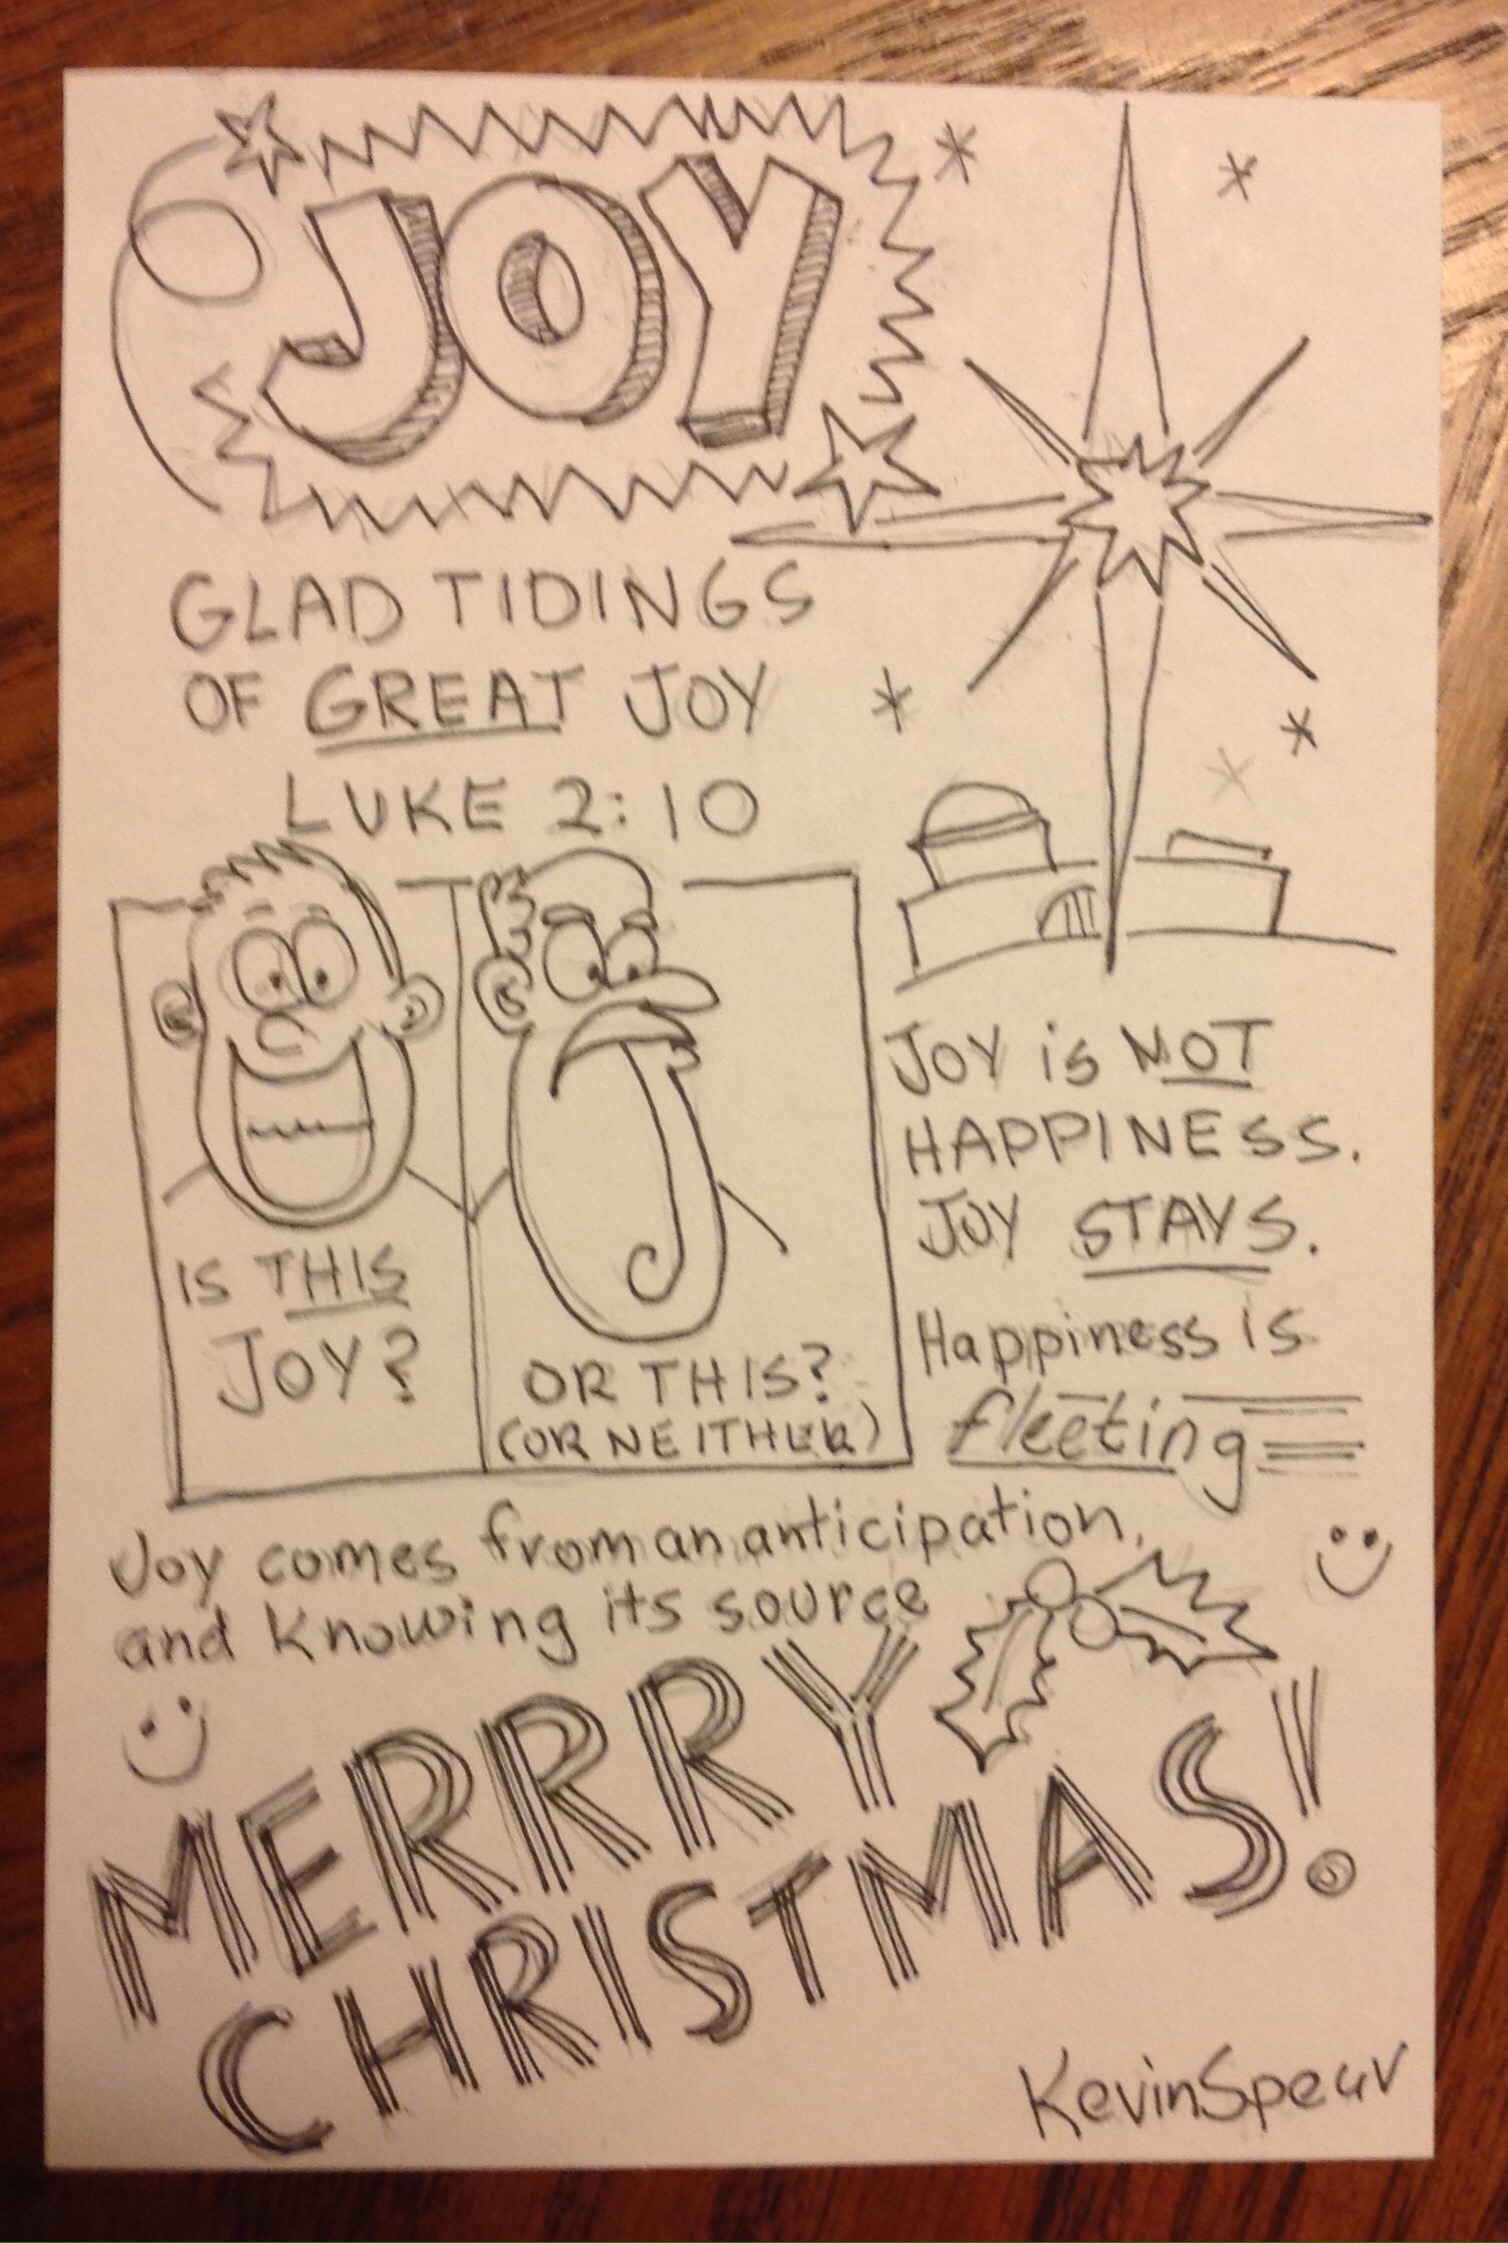 JOY
GLAD TIDINGS
OF GREAT JOY
LUKE 2:10
IS THIS
JOY?
OR THIS?
(OR NEITHER)
JOY is NOT
HAPPINESS.
JOY STAYS.
Happiness is
fleeting
Joy comes from an anticipation,
and knowing its source
MERRRY
CHRISTMAS!
KevinSpear